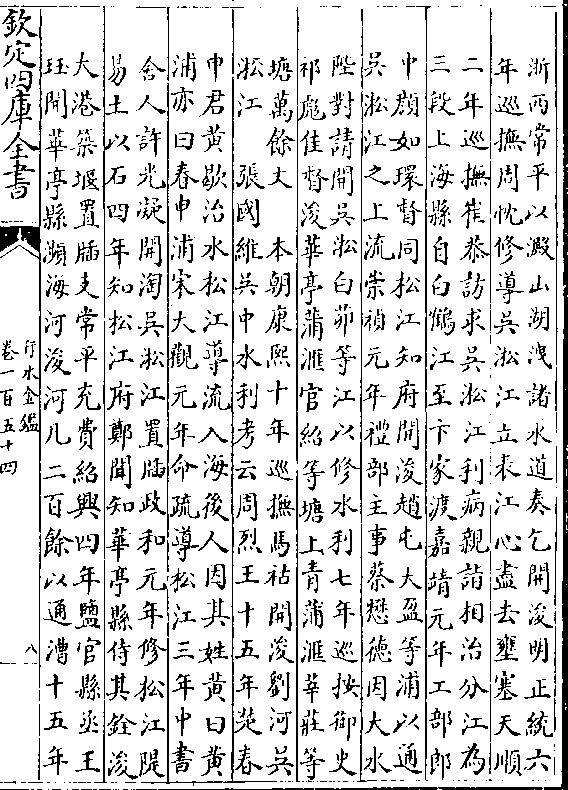 浙西常平以澱山湖洩諸水道奏乞開浚明正統六
年巡撫周忱修導吳淞江立表江心盡去壅塞天順
二年巡撫崔恭訪求吳淞江利病親詣相治分江為
三段上海縣自白鶴江至卞家渡嘉靖元年工部郎
中顔如環督同松江知府開浚趙屯大盈等浦以通
吳淞江之上流崇禎元年禮部主事蔡懋德因大水
陛對請開吳淞白茆等江以修水利七年巡按御史
祁彪佳督浚華亭蒲滙官紹等塘上青蒲滙莘莊等
塘萬餘丈　本朝康熙十年巡撫馬祜開浚劉河吳
淞江　張國維吳中水利考云周烈王十五年楚春
申君黄歇治水松江導流入海後人因其姓黄曰黄
浦亦曰春申浦宋大觀元年命疏導松江三年中書
舍人許光凝開淘吳淞江置牐政和元年修松江隄
易土以石四年知松江府鄭聞知華亭縣侍其銓浚
大港築堰置牐支常平充費紹興四年鹽官縣丞王
珏開華亭縣瀕海河浚河凡二百餘以通漕十五年
欽定四庫全書
行水金鑑
卷一百五十四
八